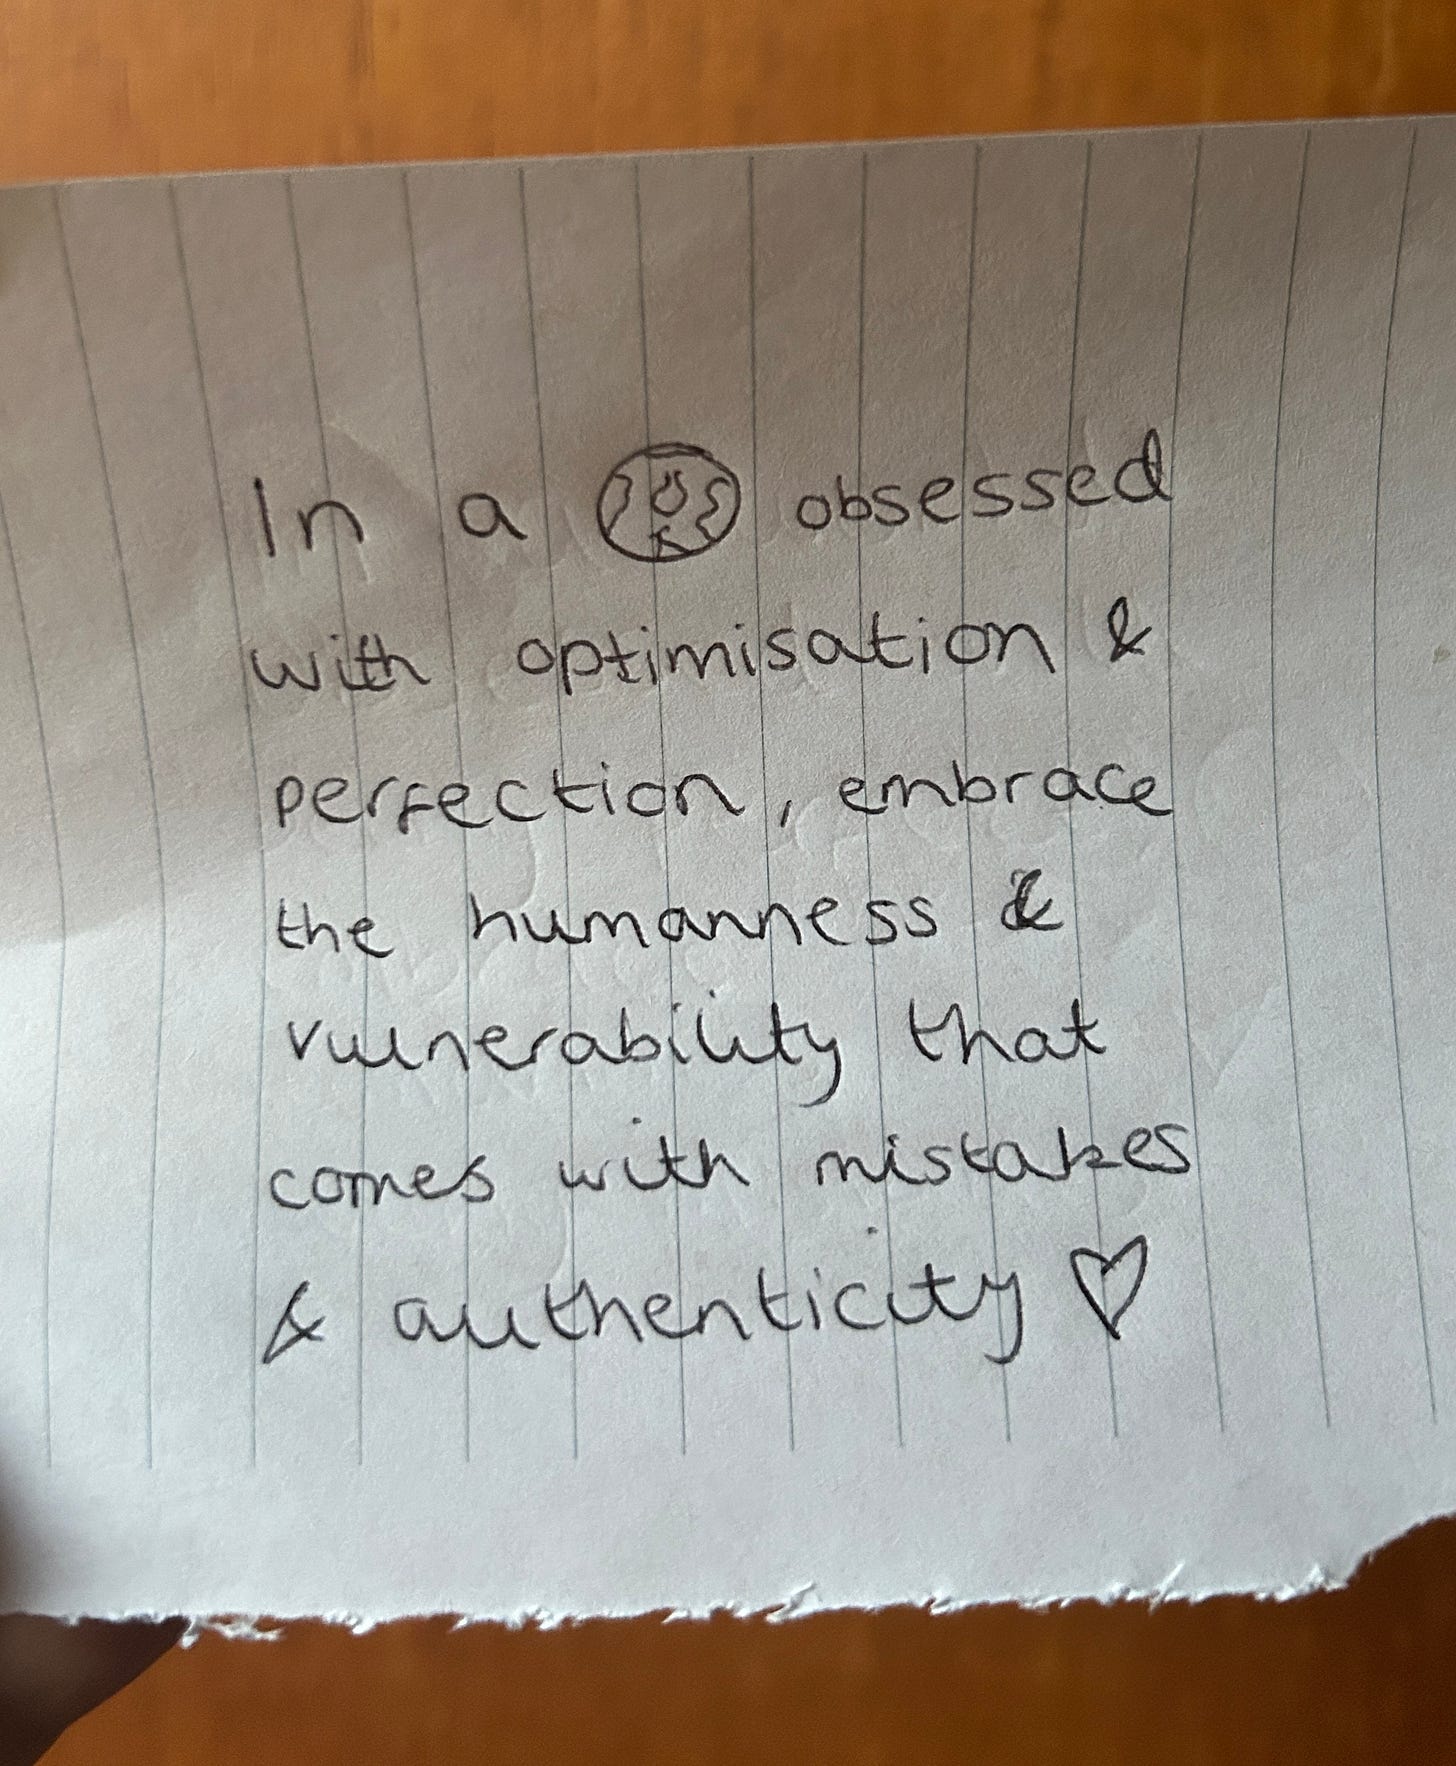 In a 🌍 obsessed
with optimisation &
perfection, embrace
the humanness &
vulnerability that
comes with mistakes
& authenticity ♡